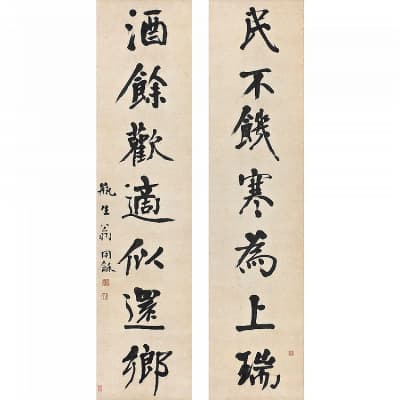 民不飢寒為上瑞
酒餘歡適似還鄉
瓶生翁同龢